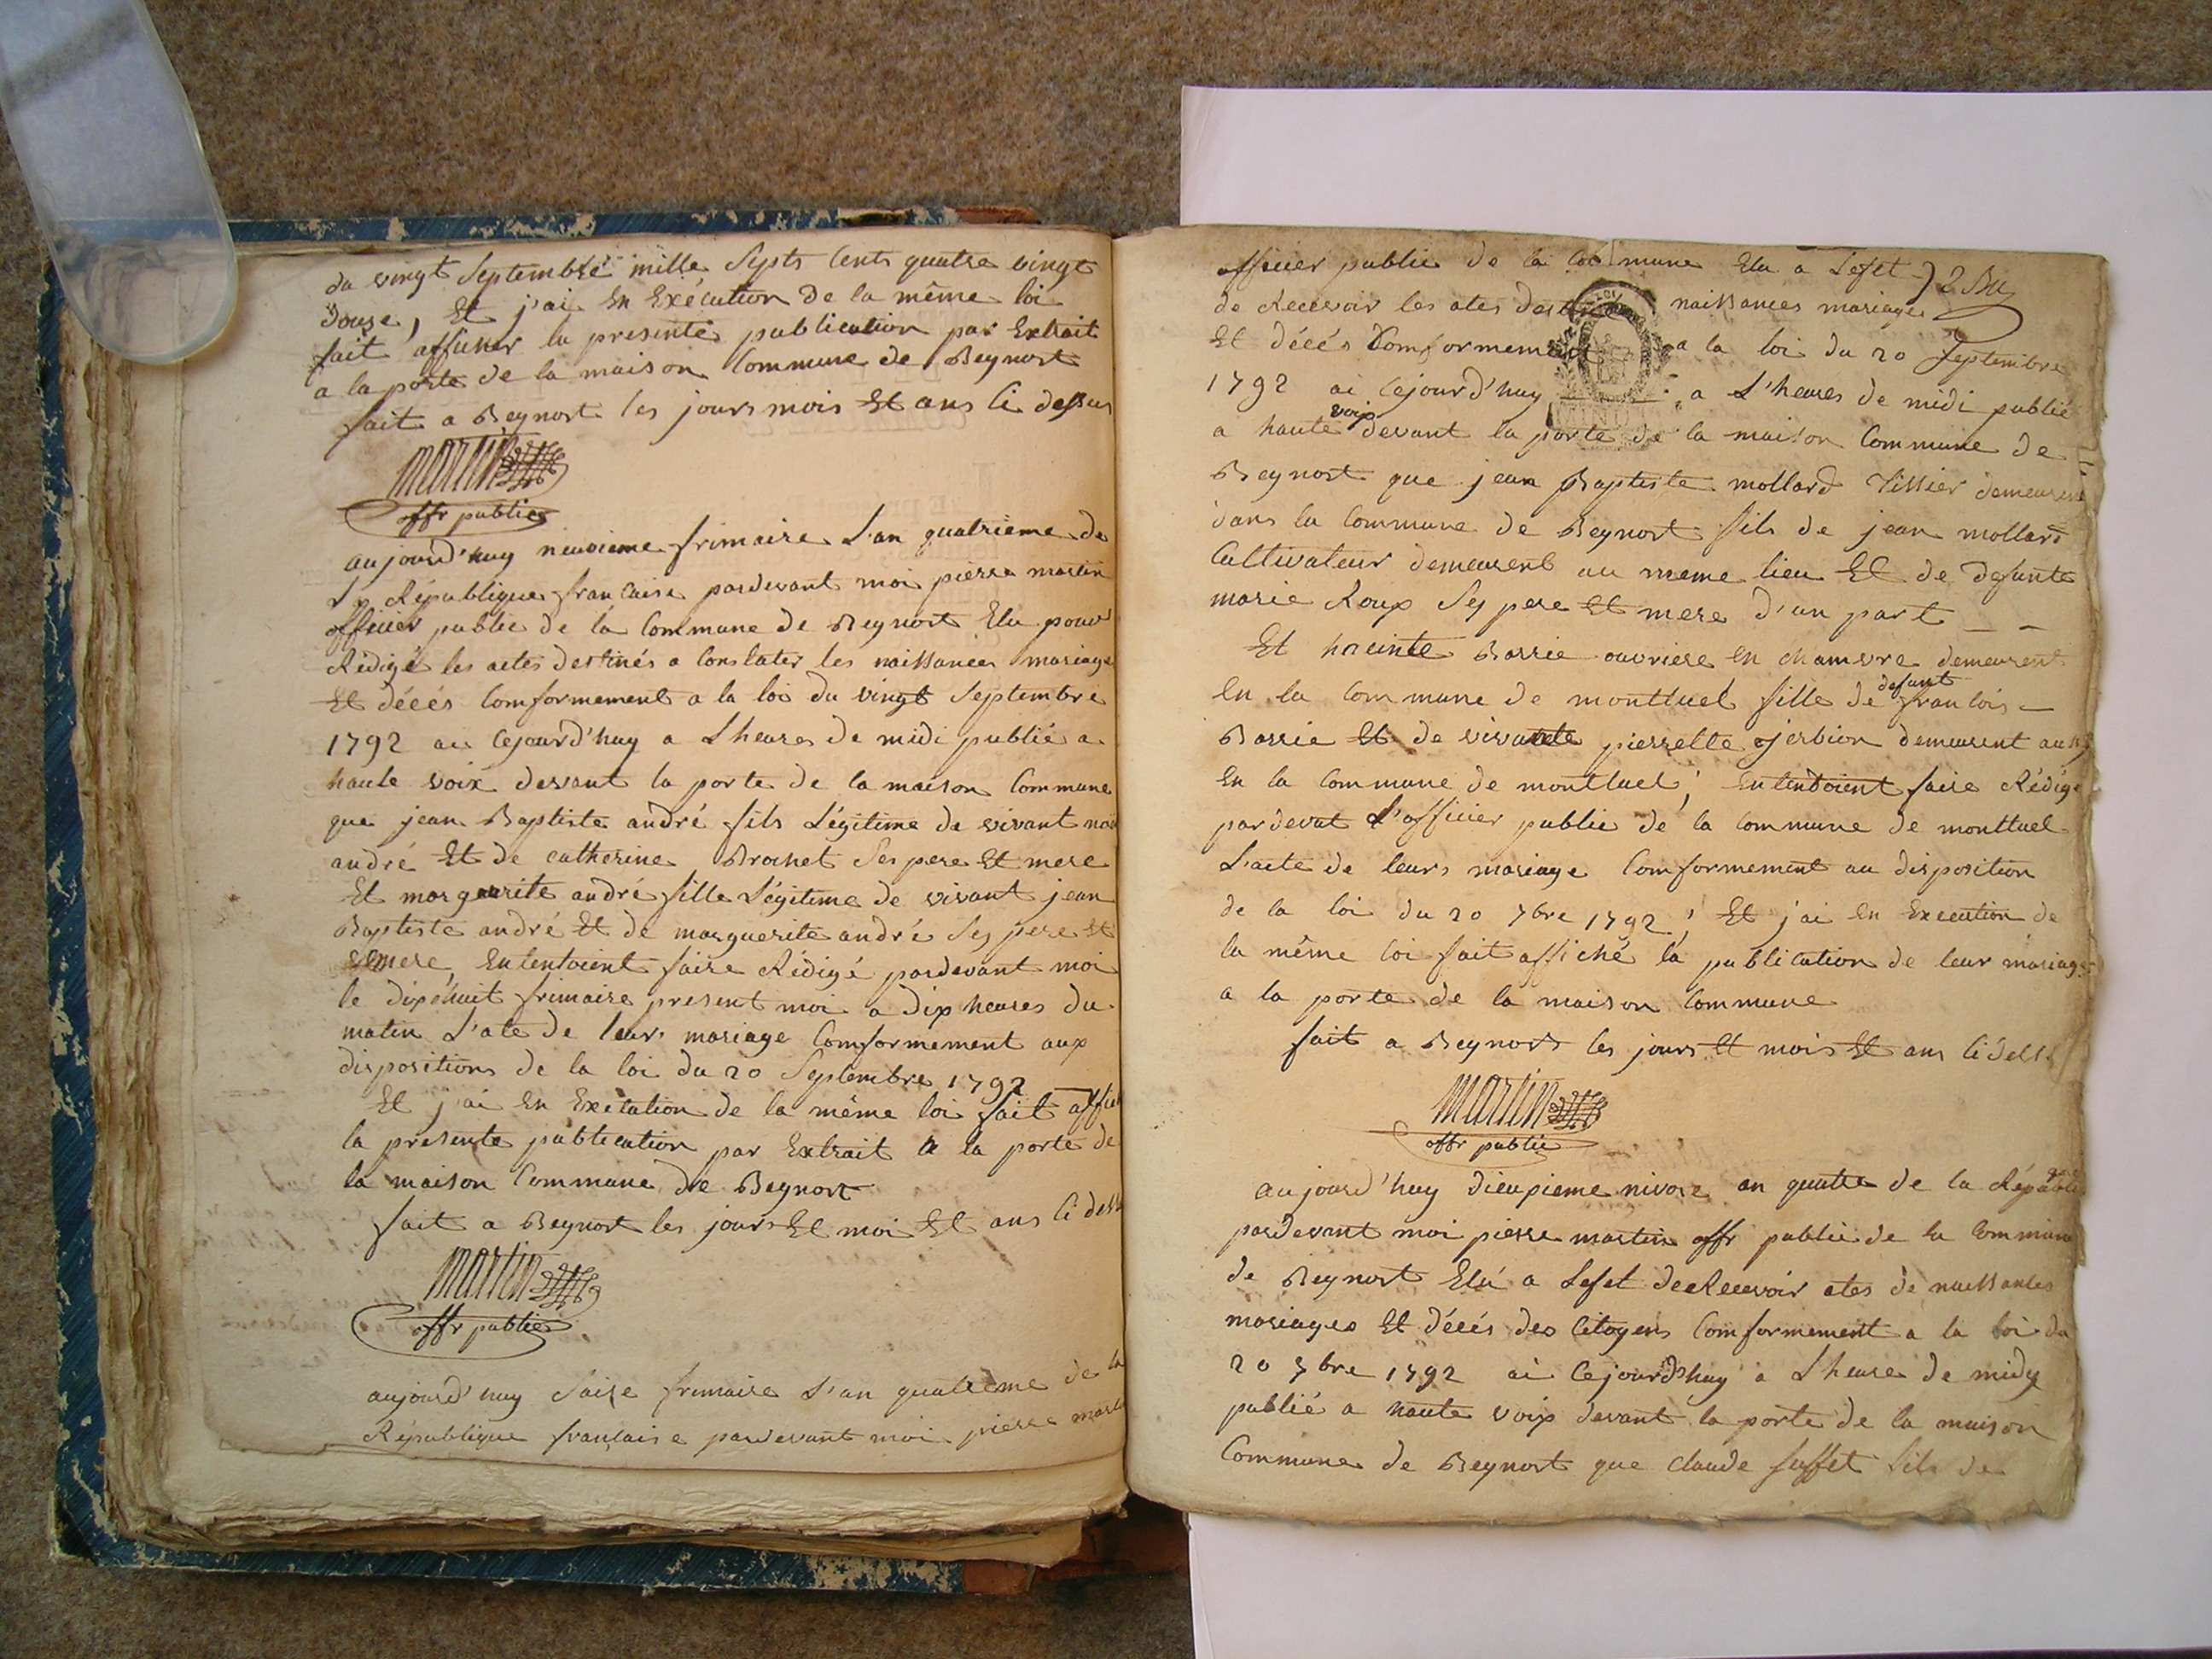 du vingt Septembre mille Septs Cents quatre vingt
douze, Et j'ai En Exécution de la même loi
fait afficher la presente publication par Extrait
a la porte de la maison Commune de Beynost
fait a Beynost les jours mois Et ans Ci dessus
martin
offr public
aujourd'huy neuvieme frimaire L'an quatrieme de
La République francaise pardevant moi pierre martin
officier public de la Commune de Beynost Elu pour
Rédigé les actes destinés a Constater les naissances mariage
Et décés Comformement a la loi du vingt Septembre
1792 ai Cejourd'huy a Lheure de midi publié a
haute voix devant la porte de la maison Commune
que jean Baptiste andré fils Légitime de vivant
andré Et de catherine Brochet Ses pere Et mere
Et marguerite andré fille Légitime de vivant jean
Baptiste andré Et de marguerite andré Ses pere Et
mere, Entendoient faire Rédigé pardevant moi
le dixéhuit frimaire present moi a dix heures du
matin L'ate de leurs mariage Comformement aux
dispositions de la loi du 20 Septembre 1792
Et j'ai En Exécution de la même loi fait
la presente publication par Extrait a la porte de
la maison Commune de Beynost
fait a Beynost les jours Et moi Et ans Ci dess
martin
offr public
aujourd'huy Saize frimaire L'an quatrieme de la
République française pardevant moi pierre
officier public de la Commune Elu a Lefet
de Recevoir les ates des naissances mariages
Et décés Comformement a la loi du 20 Septembre
1792 ai Cejourd'huy a L'heures de midi publié
a haute voix devant la porte de la maison Commune de
Beynost que jean Baptiste mollard Tissier demeurent
dans la Commune de Beynost fils de jean mollard
Cultivateur demeurent au meme lieu Et de defunte
marie Roux Ses pere Et mere d'un part
Et Barrie ouvriere En chamvre demeurent
En la Commune de montluel fille de defunt francois
Barrie Et de vivante pierrette demeurent aussy
En la Commune de montluel, Entendoient faire Rédigé
pardevat L'officier public de la Commune de montluel
L'acte de leurs mariage Comformement au disposition
de la loi du 20 7bre 1792, Et j'ai En Execution de
la même loi fait affiché la publication de leur mariage
a la porte de la maison Commune
fait a Beynost les jours Et mois Et ans Cidess
martin
offr public
aujourd'huy dieuxieme nivose an quatre de la Républi
pardevant moi pierre martin offr public de la Commune
de Beynost Elu a Lefet de Recevoir ates de naissances
mariages Et décés des Citoyens Comformement a la loi du
20 7bre 1792 ai Cejourd'huy a Lheure de midy
publié a haute voix devant la porte de la maison
Commune de Beynost que claude fils de